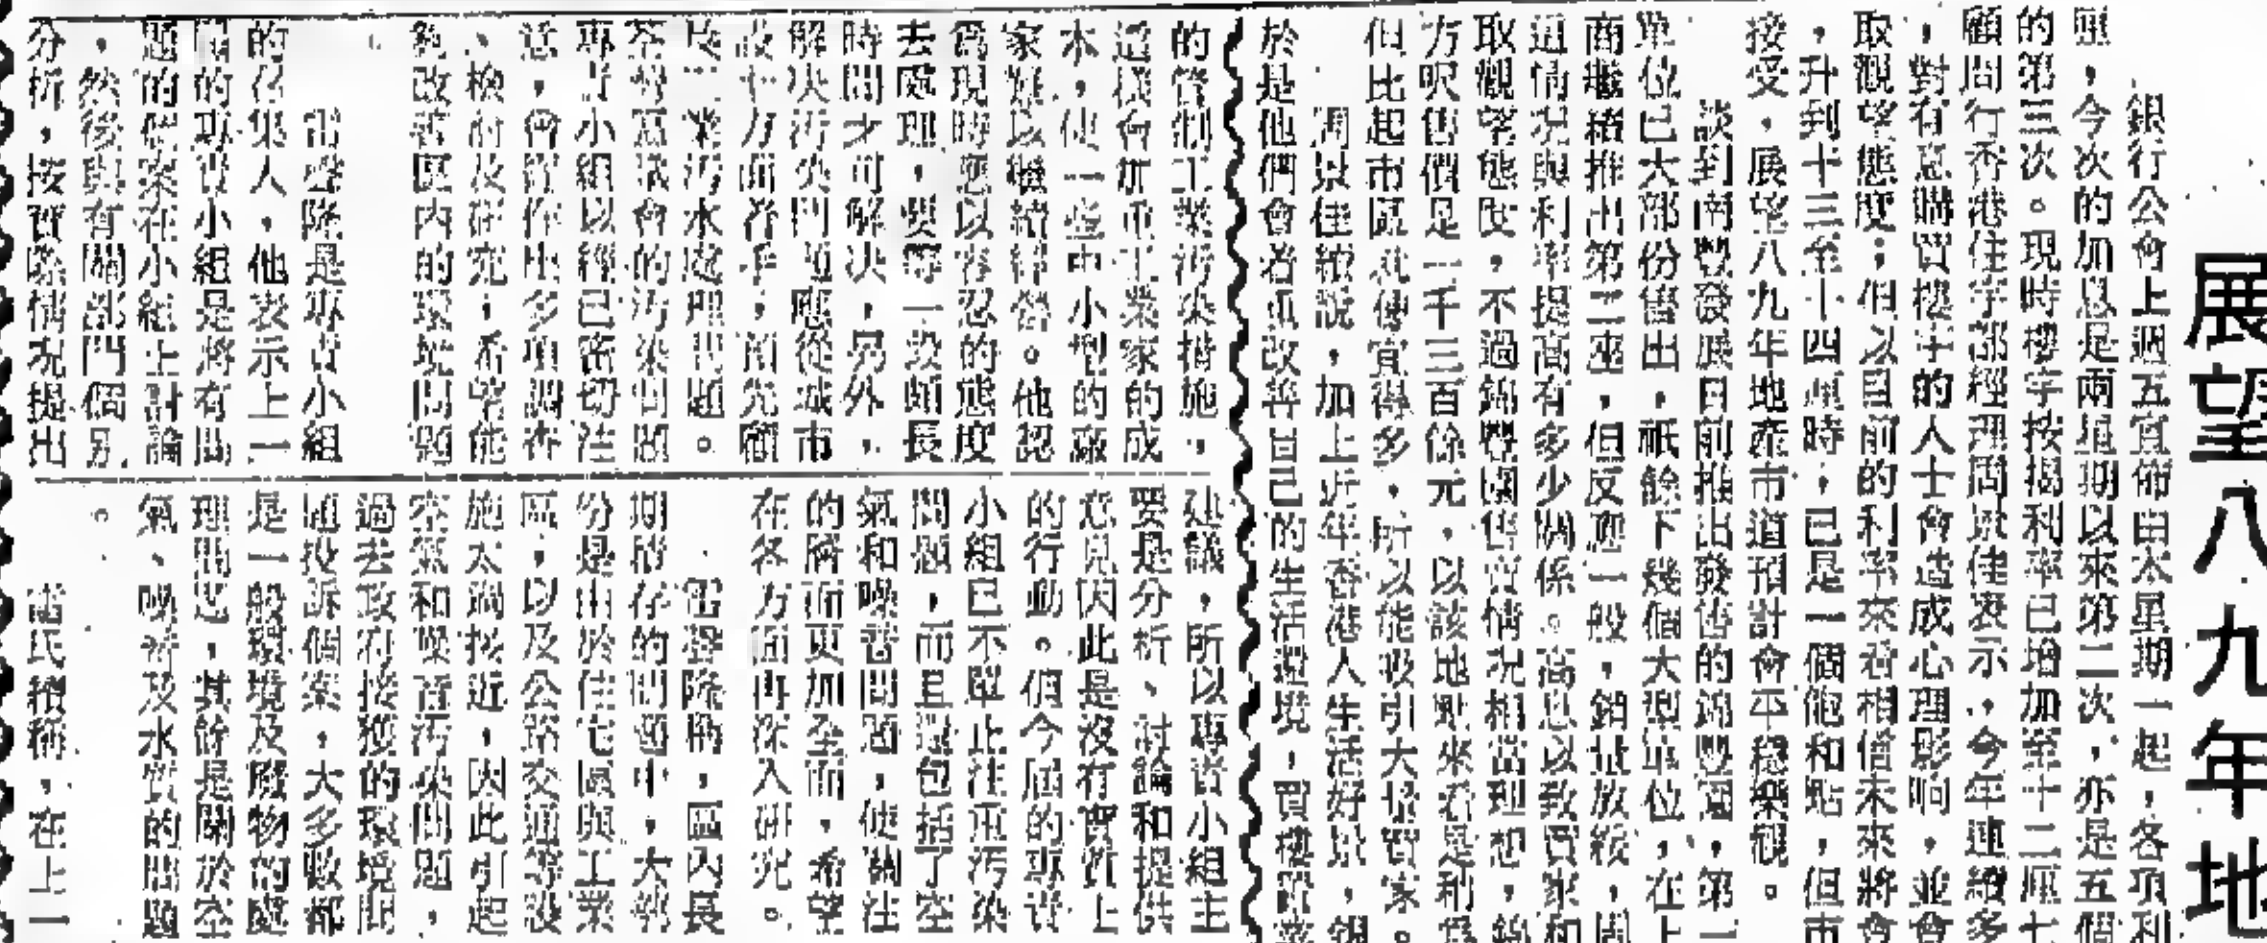 展望八九年地
銀行公會上週五宣佈由本星期一起，各項利
，今次的加息是兩星期以來第二次，亦是五個
的第三次。現時樓宇按揭利率已增加至十二厘七
顧問行香港住宇部經理周景佳表示，今年連續多
，對有意購買樓宇的人士會造成心理影响，並會
取觀望態度；但以目前的利率來看相信未來將會
，升到十三至十四厘時，已是一個飽和點，但市
接受，展望八九年地產市道預計會平穩樂觀。
談到南豐發展日前推出發售的錦豐園，第一
單位已大部份售出，祇餘下幾個大型單位，在上
商繼續推出第二座，但反應一般，銷量放緩，周
這情况與利率提高有多少關係。高息以致買家和
取觀望態度，不過錦豐園售賣情况相當理想，錦
方呎售價是一千三百餘元，以該地點來看是
但比起市區就便宜得多，所以能吸引大量買家。
周景佳續說，加上近年香港人生活好景，銀
於是他們會着重改善自己的生活環境，買樓置業
的管制工業污染措施，
這樣會加重工業家的成
本，使一些中小型的廠
家難以繼續經營。他認
為現時應以容忍的態度
去處理，要等一段頗長
時間才可解決，另外，
解决污染問題應從城市
設計方面着手，預先顧
及工業污水處理問題。
荃灣區議會的污染問題
專責小組以經已密切注
意，會作出多項調查
、檢討及研究，希望能
夠改善區內的環境問題
。
雷聲隆是專責小組
的召集人，他表示上一
屆的專責小組是將有問
題的個案在小組上討論
，然後與有關部門個別
分析，按實際情况提出
建議，所以專責小組主
要是分析、討論和提供
意見因此是沒有實質上
的行動。但今屆的專責
小組已不單止注重污染
問題，而且還包括了空
氣和噪音問題，使關注
的層面更加全面，希望
在各方面再深入研究。
雷聲隆稱，區內長
期存的問題中，大部
份是由於住宅區與工業
區，以及公路交通等設
施太過接近，因此引起
空氣和噪音污染問題，
過去政府接獲的環境問
題投訴個案，大多數都
是一般環境及廢物的處
理問題，其餘是關於空
氣、噪音及水質的問題
。
雷氏續稱，在上一